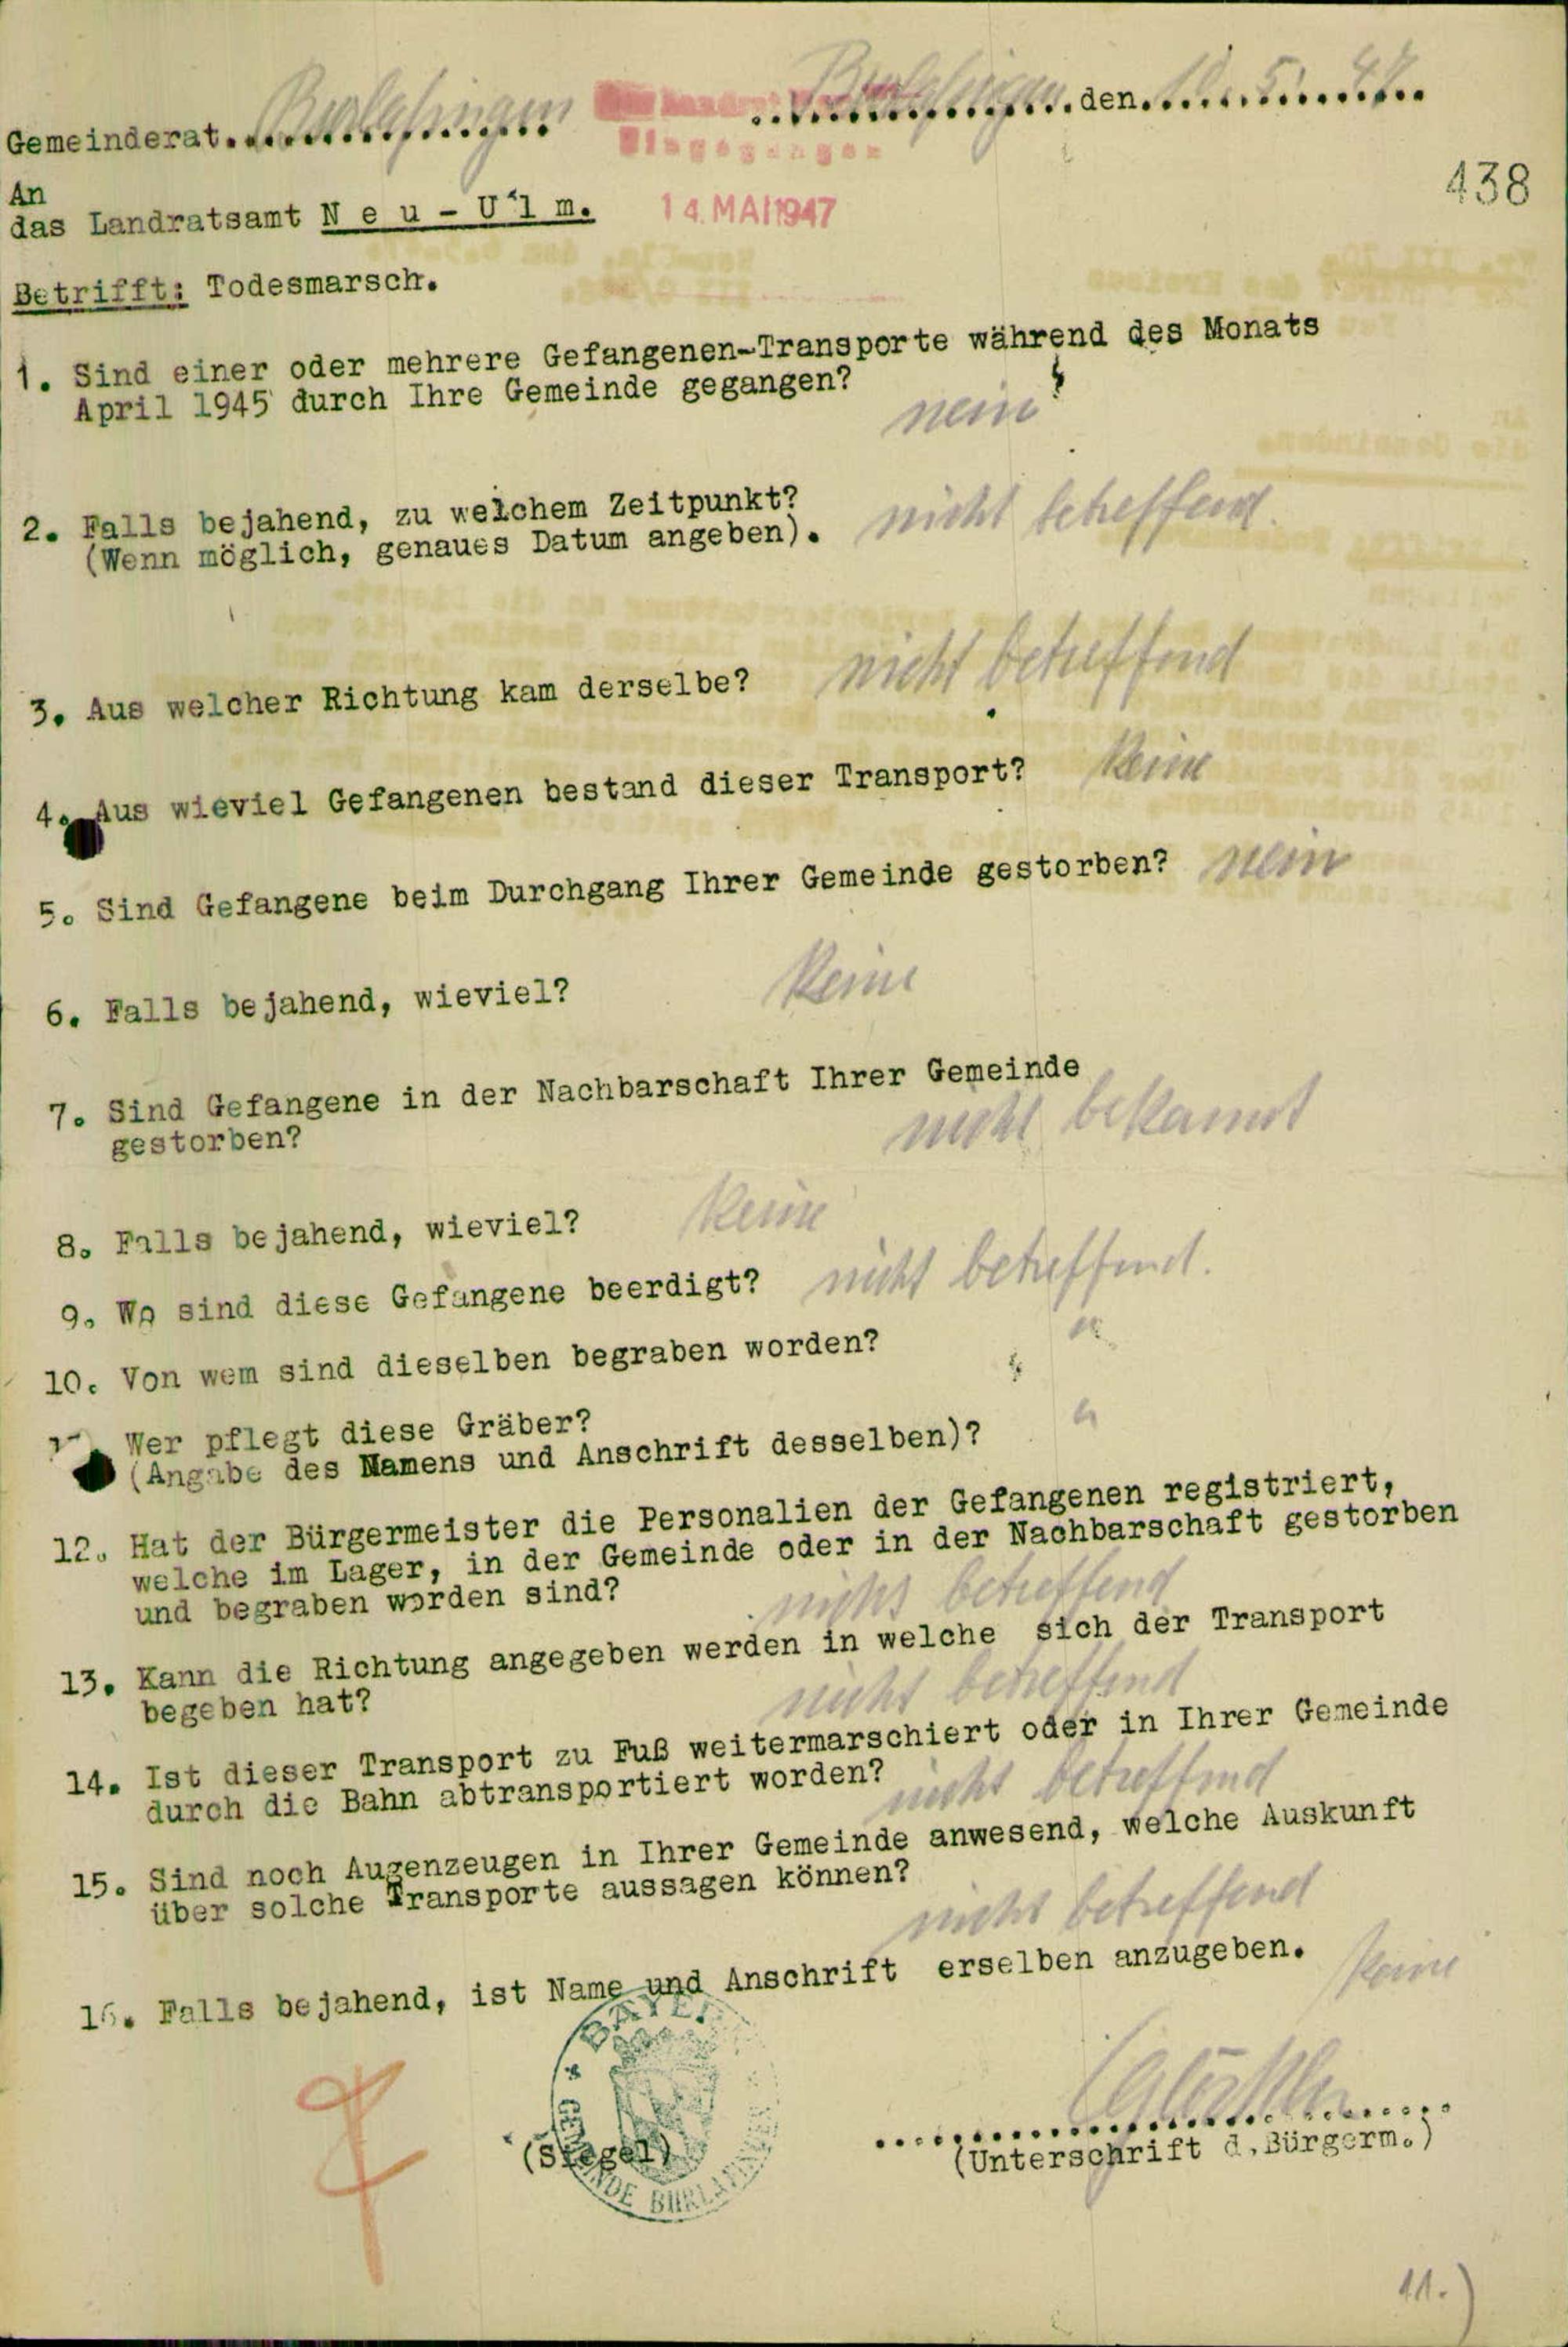 Gemeinderat Burlafingen
Burlafingen den 10. 5. 47
Eingegangen
438
An
das Landratsamt N e u - U l m.
14. MAI 1947
Betrifft: Todesmarsch.
1. Sind einer oder mehrere Gefangenen-Transporte während des Monats
April 1945 durch Ihre Gemeinde gegangen?
nein
2. Falls bejahend, zu welchem Zeitpunkt?
(Wenn möglich, genaues Datum angeben).
nicht betreffend.
3. Aus welcher Richtung kam derselbe? nicht betreffend
4. Aus wieviel Gefangenen bestand dieser Transport? keine
5. Sind Gefangene beim Durchgang Ihrer Gemeinde gestorben? nein
6. Falls bejahend, wieviel? keine
7. Sind Gefangene in der Nachbarschaft Ihrer Gemeinde
gestorben? nicht bekannt
8. Falls bejahend, wieviel? keine
9. Wo sind diese Gefangene beerdigt? nicht betreffend.
10. Von wem sind dieselben begraben worden? "
Wer pflegt diese Gräber? "
(Angabe des Namens und Anschrift desselben)?
12. Hat der Bürgermeister die Personalien der Gefangenen registriert,
welche im Lager, in der Gemeinde oder in der Nachbarschaft gestorben
und begraben worden sind? nicht betreffend
13. Kann die Richtung angegeben werden in welche sich der Transport
begeben hat? nicht betreffend
14. Ist dieser Transport zu Fuß weitermarschiert oder in Ihrer Gemeinde
durch die Bahn abtransportiert worden? nicht betreffend
15. Sind noch Augenzeugen in Ihrer Gemeinde anwesend, welche Auskunft
über solche Transporte aussagen können?
nicht betreffend
16. Falls bejahend, ist Name und Anschrift erselben anzugeben. keine
(Siegel)
(Unterschrift d.Bürgerm.)
11.)